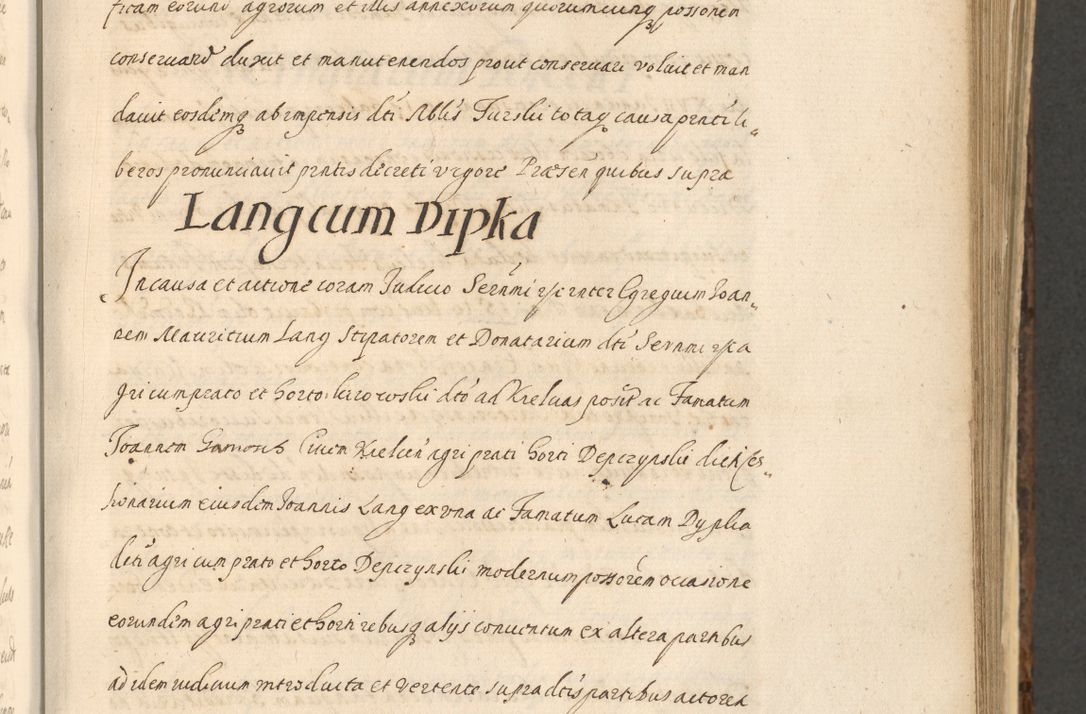 ficam eorund agrorum et illis annexorum quorumcunq possonem
conseruard duxit et manutenendos prout conseruari voluit et man
dauit eosdemq ab impensis dti Nblis Turski totaq causa prntili
beros pronunciauit prntis decreti vigore Præsen quibus supra
Lang cum Dipka
In causa et actione coram Iudicio Serenmi inter Egregium Ioan
nem Mauritium Lang Stipatorem et Donatarium dti Serenmi
Agri cum prato et horto dto ad Kielcas posit ac Famatum
Ioannem Gamorich Ciuem Kielcen agri prati horti Depczynskie dicti Ces
sionarium eiusdem Ioannis Lang ex vna ac Famatum Lucam Dypka
dicti agri cum prato et horto Depczynskii modernum possorem occasione
eorundem agri prati et horti rebusq alijs conuentum ex altera partibus
ad idem iudicium introducta et vertente supradtis partibus actorea